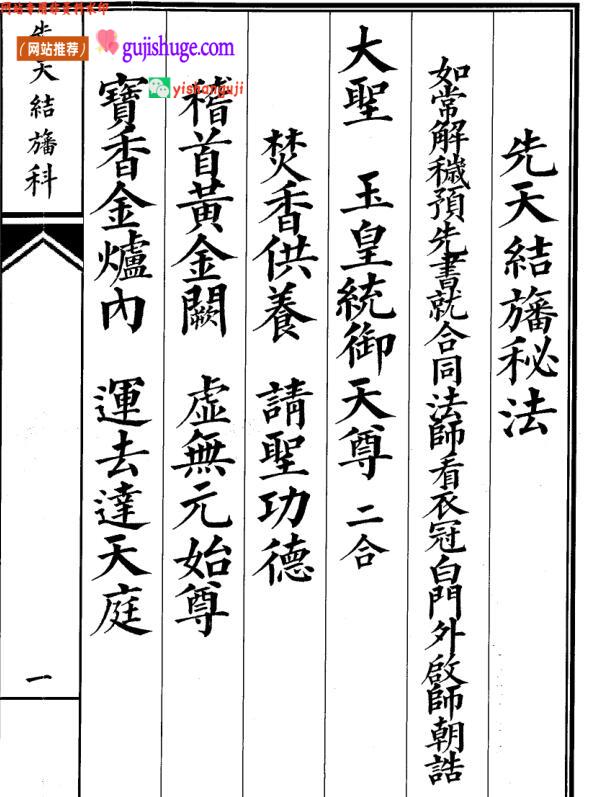 先天結旛秘法
如常解穢預先書就合同法師看衣冠白門外啟師朝誥
大聖　玉皇統御天尊　二合
焚香供養　請聖功德
稽首黃金闕　虛無元始尊
寶香金爐內　運去達天庭
先天結旛科
一
(网站推荐)
gujishuge.com
yishanguji